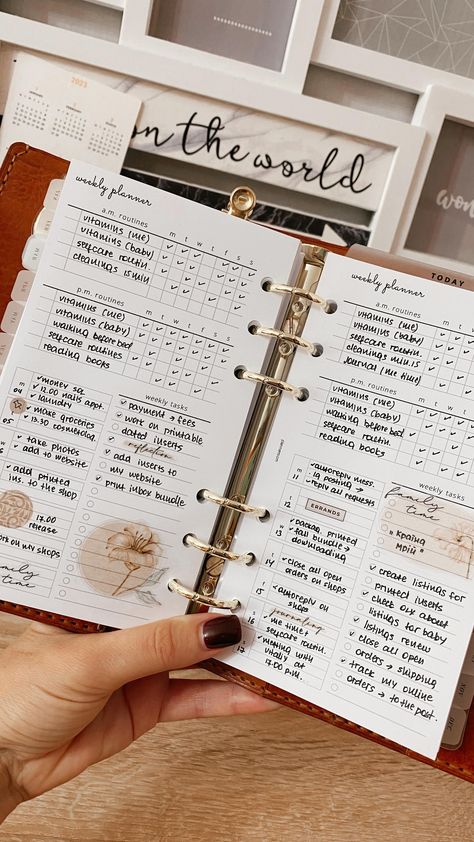 2023
on the world
weekly planner
a.m. routines
m t w t f s s
vitamins (me)
vitamins (baby)
selfcare routin.
cleanings 15 min
p.m. routines
m t w t f s s
vitamins (me)
vitamins (baby)
walking before bed
selfcare routines
reading books
m
04
money sa.
12.00 nails appt.
laundry
make groceries
13.30 cosmetolog.
take photos
add to website
add printed
ins. to the shop
17.00
release
work on my shops
family
time
weekly tasks
payment → fees
work on printable
dated inserts
reflection
add inserts to
my website
print inbox bundle
TODAY
weekly planner
a.m. routines
vitamins (me)
vitamins (baby)
selfcare routin.
cleanings min.15
journal (me time)
p.m. routines
vitamins (me)
vitamins (baby)
walking before bed
selfcare routin.
reading books
m
11
autoreply mess.
ig posting →
reply all requests
t
12
ERRANDS
w
13
packing printed
fall bundle →
downloading
t
14
close all open
orders on shops
15
autoreply on
shops
journaling
s
16
me time →
selfcare routin.
s
17
meeting with
vitaliy at
12.00 p.m.
weekly tasks
family
time
"Країна
Мрій"
create listings for
printed inserts
check ocx about
listings for baby
listings review
close all open
orders → shipping
track my online
orders → to the post